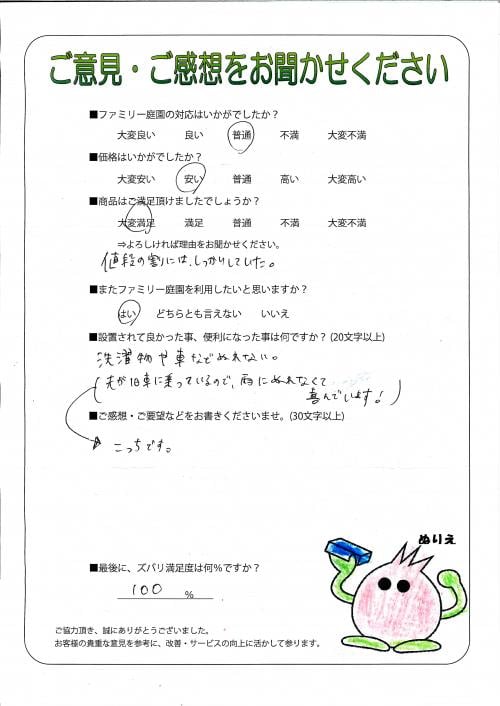 ご意見・ご感想をお聞かせください
■ファミリー庭園の対応はいかがでしたか？
大変良い　良い　普通　不満　大変不満
■価格はいかがでしたか？
大変安い　安い　普通　高い　大変高い
■商品はご満足頂けましたでしょうか？
大変満足　満足　普通　不満　大変不満
⇒よろしければ理由をお聞かせください。
値段の割には、しっかりしていた。
■またファミリー庭園を利用したいと思いますか？
はい　どちらとも言えない　いいえ
■設置されて良かった事、便利になった事は何ですか？(20文字以上)
洗濯物や車などぬれない。
(夫が旧車に乗っているので、雨にぬれなくて
喜んでいます！)
■ご感想・ご要望などをお書きくださいませ。(30文字以上)
こっちです。
ぬりえ
■最後に、ズバリ満足度は何％ですか？
100　％
ご協力頂き、誠にありがとうございました。
お客様の貴重な意見を参考に、改善・サービスの向上に活かして参ります。